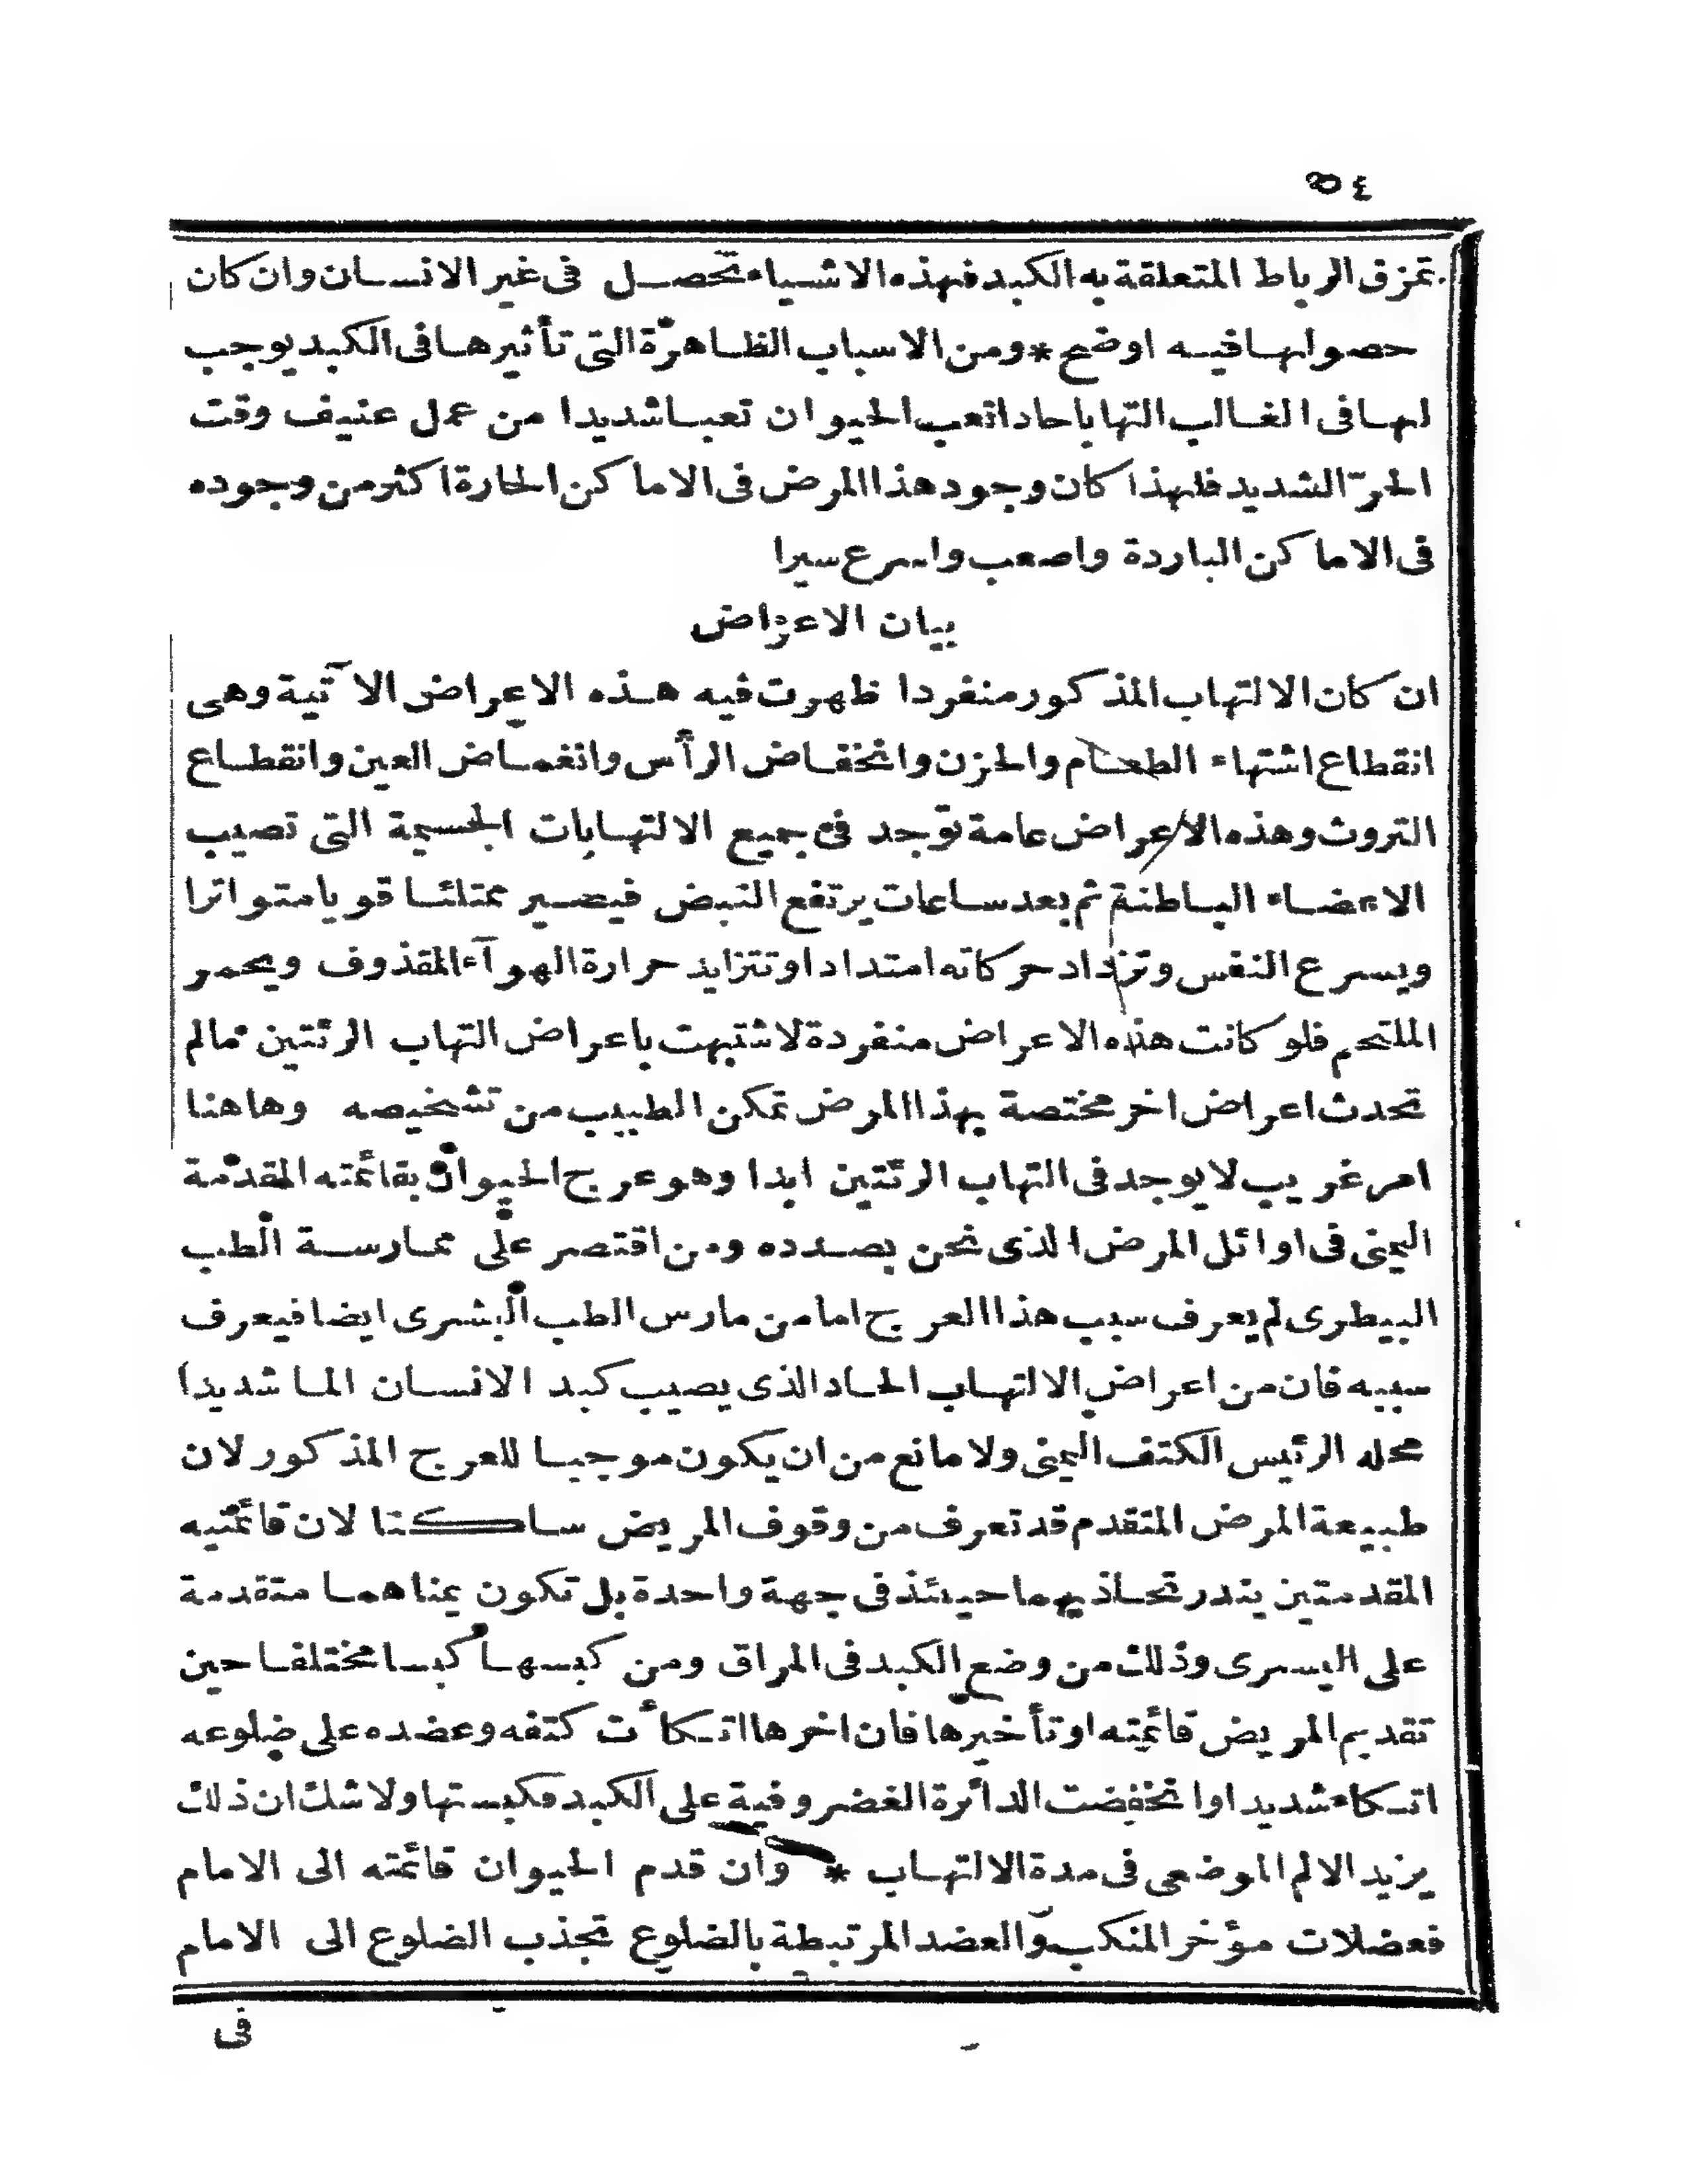 ٥٤
تمزق الرباط المتعلقة به الكبد فهذه الاشياء تحصل فى غير الانسان وان كان
حصولها فيه اوضح * ومن الاسباب الظاهرة التى تأثيرها فى الكبد يوجب
لها فى الغالب التهابا حادا تعب الحيوان تعبا شديدا من عمل عنيف وقت
الحرّ الشديد فلهذا كان وجود هذا المرض فى الاماكن الحارة اكثر من وجوده
فى الاماكن الباردة واصعب واسرع سيرا
بيان الاعراض
ان كان الالتهاب المذكور منفردا ظهرت فيه هذه الاعراض الآتية وهى
انقطاع اشتهاء الطعام والحزن وانخفاض الرأس وانغماض العين وانقطاع
التروث وهذه الاعراض عامة توجد فى جميع الالتهابات الجسيمة التى تصيب
الاعضاء الباطنة ثم بعد ساعات يرتفع النبض فيصير ممتلئا قويا متواترا
ويسرع النفس وتزداد حركاته امتدادا وتتزايد حرارة الهوآء المقذوف ويحمر
الملتحم فلو كانت هذه الاعراض منفردة لاشتبهت باعراض التهاب الرئتين مالم
تحدث اعراض اخر مختصة بهذا المرض تمكن الطبيب من تشخيصه وهاهنا
امر غريب لا يوجد فى التهاب الرئتين ابدا وهو عرج الحيوان بقائمته المقدّمة
اليمنى فى اوائل المرض الذى نحن بصدده ومن اقتصر على ممارسة الطب
البيطرى لم يعرف سبب هذا العرج اما من مارس الطب البشرى ايضا فيعرف
سببه فان من اعراض الالتهاب الحاد الذى يصيب كبد الانسان الما شديدا
محله الرئيس الكتف اليمنى ولا مانع من ان يكون موجبا للعرج المذكور لان
طبيعة المرض المتقدم قد تعرف من وقوف المريض ساكتا لان قائمتيه
المقدمتين يندر تحاذيهما حينئذ فى جهة واحدة بل تكون يمناهما متقدمة
على اليسرى وذلك من وضع الكبد فى المراق ومن كبسها كبسا مختلفا حين
تقديم المريض قائمته اوتأخيرها فان اخرها اتكأت كتفه وعضده على ضلوعه
اتكاء شديدا وانخفضت الدائرة الغضروفية على الكبد فكبستها ولا شك ان ذلك
يزيد الالم الموضعى فى مدة الالتهاب * وان قدم الحيوان قائمته الى الامام
فعضلات مؤخر المنكب والعضد المرتبطة بالضلوع تجذب الضلوع الى الامام
فى